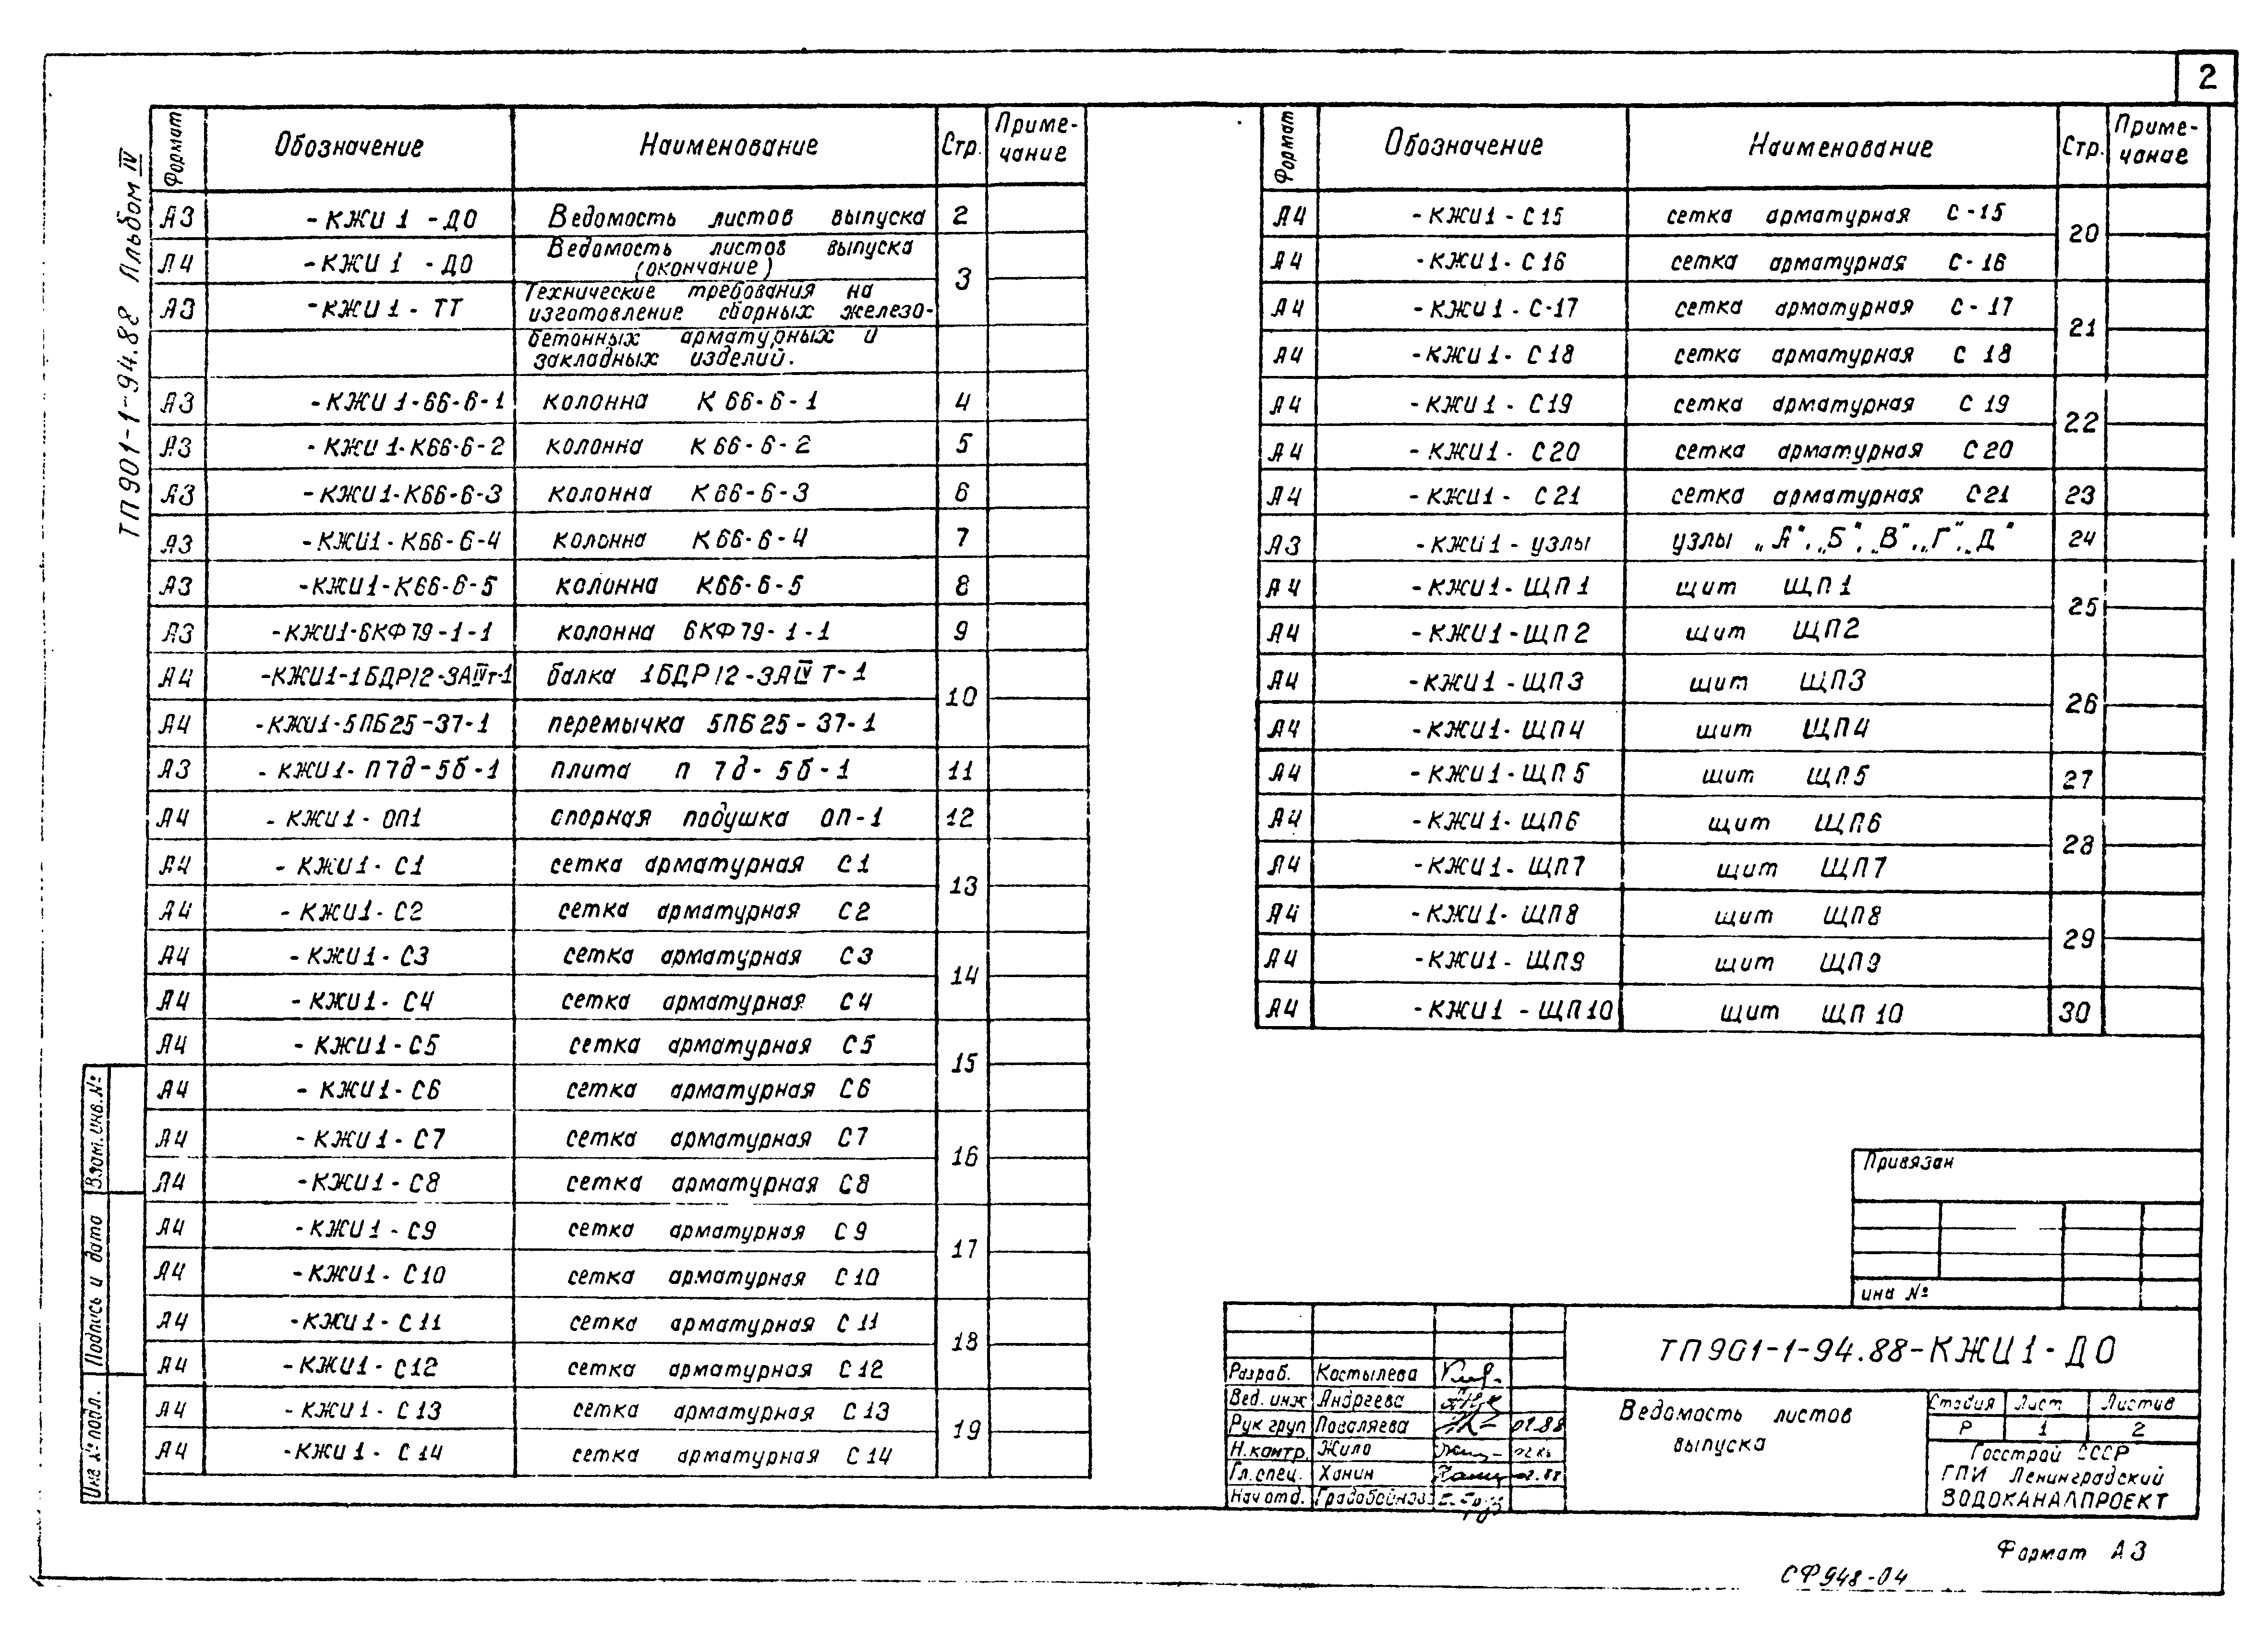 2
ТП901-1-94.88 Альбом IV
Формат Обозначение Наименование Стр. Приме-чание
А3 -КЖИ1-ДО Ведомость листов выпуска 2
А4 -КЖИ1-ДО Ведомость листов выпуска (окончание) 3
А3 -КЖИ1-ТТ Технические требования на изготовление сборных железо-
бетонных арматурных и закладных изделий.
А3 -КЖИ1-66-6-1 колонна К66-6-1 4
А3 -КЖИ1-К66-6-2 колонна К66-6-2 5
А3 -КЖИ1-К66-6-3 колонна К66-6-3 6
А3 -КЖИ1-К66-6-4 колонна К66-6-4 7
А3 -КЖИ1-К66-6-5 колонна К66-6-5 8
А3 -КЖИ1-6КФ79-1-1 колонна 6КФ79-1-1 9
А4 -КЖИ1-1БДР12-3АIVт-1 балка 1БДР12-3АIVТ-1 10
А4 -КЖИ1-5ПБ25-37-1 перемычка 5ПБ25-37-1
А3 -КЖИ1-П7д-5б-1 плита п 7д-5б-1 11
А4 -КЖИ1-ОП1 опорная подушка ОП-1 12
А4 -КЖИ1-С1 сетка арматурная С1 13
А4 -КЖИ1-С2 сетка арматурная С2
А4 -КЖИ1-С3 сетка арматурная С3 14
А4 -КЖИ1-С4 сетка арматурная С4
А4 -КЖИ1-С5 сетка арматурная С5 15
А4 -КЖИ1-С6 сетка арматурная С6
А4 -КЖИ1-С7 сетка арматурная С7 16
А4 -КЖИ1-С8 сетка арматурная С8
А4 -КЖИ1-С9 сетка арматурная С9 17
А4 -КЖИ1-С10 сетка арматурная С10
А4 -КЖИ1-С11 сетка арматурная С11 18
А4 -КЖИ1-С12 сетка арматурная С12
А4 -КЖИ1-С13 сетка арматурная С13 19
А4 -КЖИ1-С14 сетка арматурная С14
Формат Обозначение Наименование Стр. Приме-чание
А4 -КЖИ1-С15 сетка арматурная С-15 20
А4 -КЖИ1-С16 сетка арматурная С-16
А4 -КЖИ1-С-17 сетка арматурная С-17 21
А4 -КЖИ1-С18 сетка арматурная С 18
А4 -КЖИ1-С19 сетка арматурная С 19 22
А4 -КЖИ1-С20 сетка арматурная С20
А4 -КЖИ1-С21 сетка арматурная С21 23
А3 -КЖИ1-узлы узлы „А", „Б", „В", „Г", „Д" 24
А4 -КЖИ1-ЩП1 щит ЩП1 25
А4 -КЖИ1-ЩП2 щит ЩП2
А4 -КЖИ1-ЩП3 щит ЩП3 26
А4 -КЖИ1-ЩП4 щит ЩП4
А4 -КЖИ1-ЩП5 щит ЩП5 27
А4 -КЖИ1-ЩП6 щит ЩП6 28
А4 -КЖИ1-ЩП7 щит ЩП7
А4 -КЖИ1-ЩП8 щит ЩП8 29
А4 -КЖИ1-ЩП9 щит ЩП9
А4 -КЖИ1-ЩП10 щит ЩП10 30
Взам. инв. №
Подпись и дата
Инв № подл.
Привязан
инв №
ТП901-1-94.88-КЖИ1-ДО
Разраб. Костылева
Вед. инж Андреева
Рук груп Поваляева 02.88
Н.контр. Жила 02.88
Гл.спец. Ханин 02.88
Нач отд.
Ведомость листов
выпуска
Стадия Лист Листов
Р 1 2
Госстрой СССР
ГПИ Ленинградский
ВОДОКАНАЛПРОЕКТ
Формат А3
СФ948-04